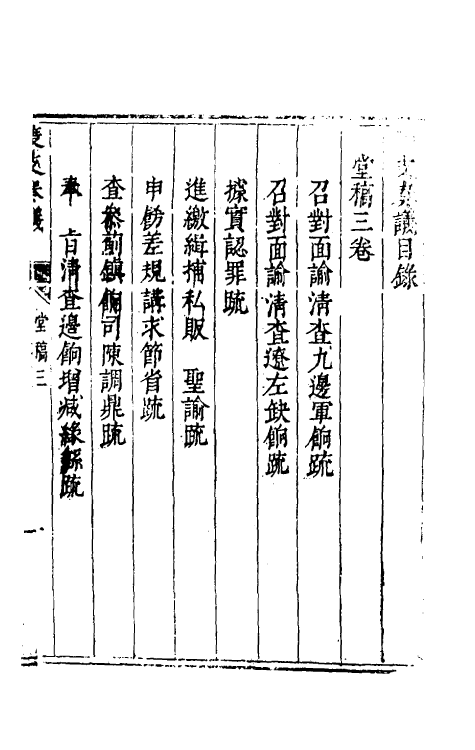 奏議目錄
堂稿三卷
召對面諭清查九邊軍餉疏
召對面諭清查遼左缺餉疏
據實認罪疏
進繳緝捕私販　聖諭疏
申飭差規講求節省疏
查參前鎮餉司陳調鼎疏
奉　旨清查邊餉增減緣繇疏
奏議
堂稿三
一